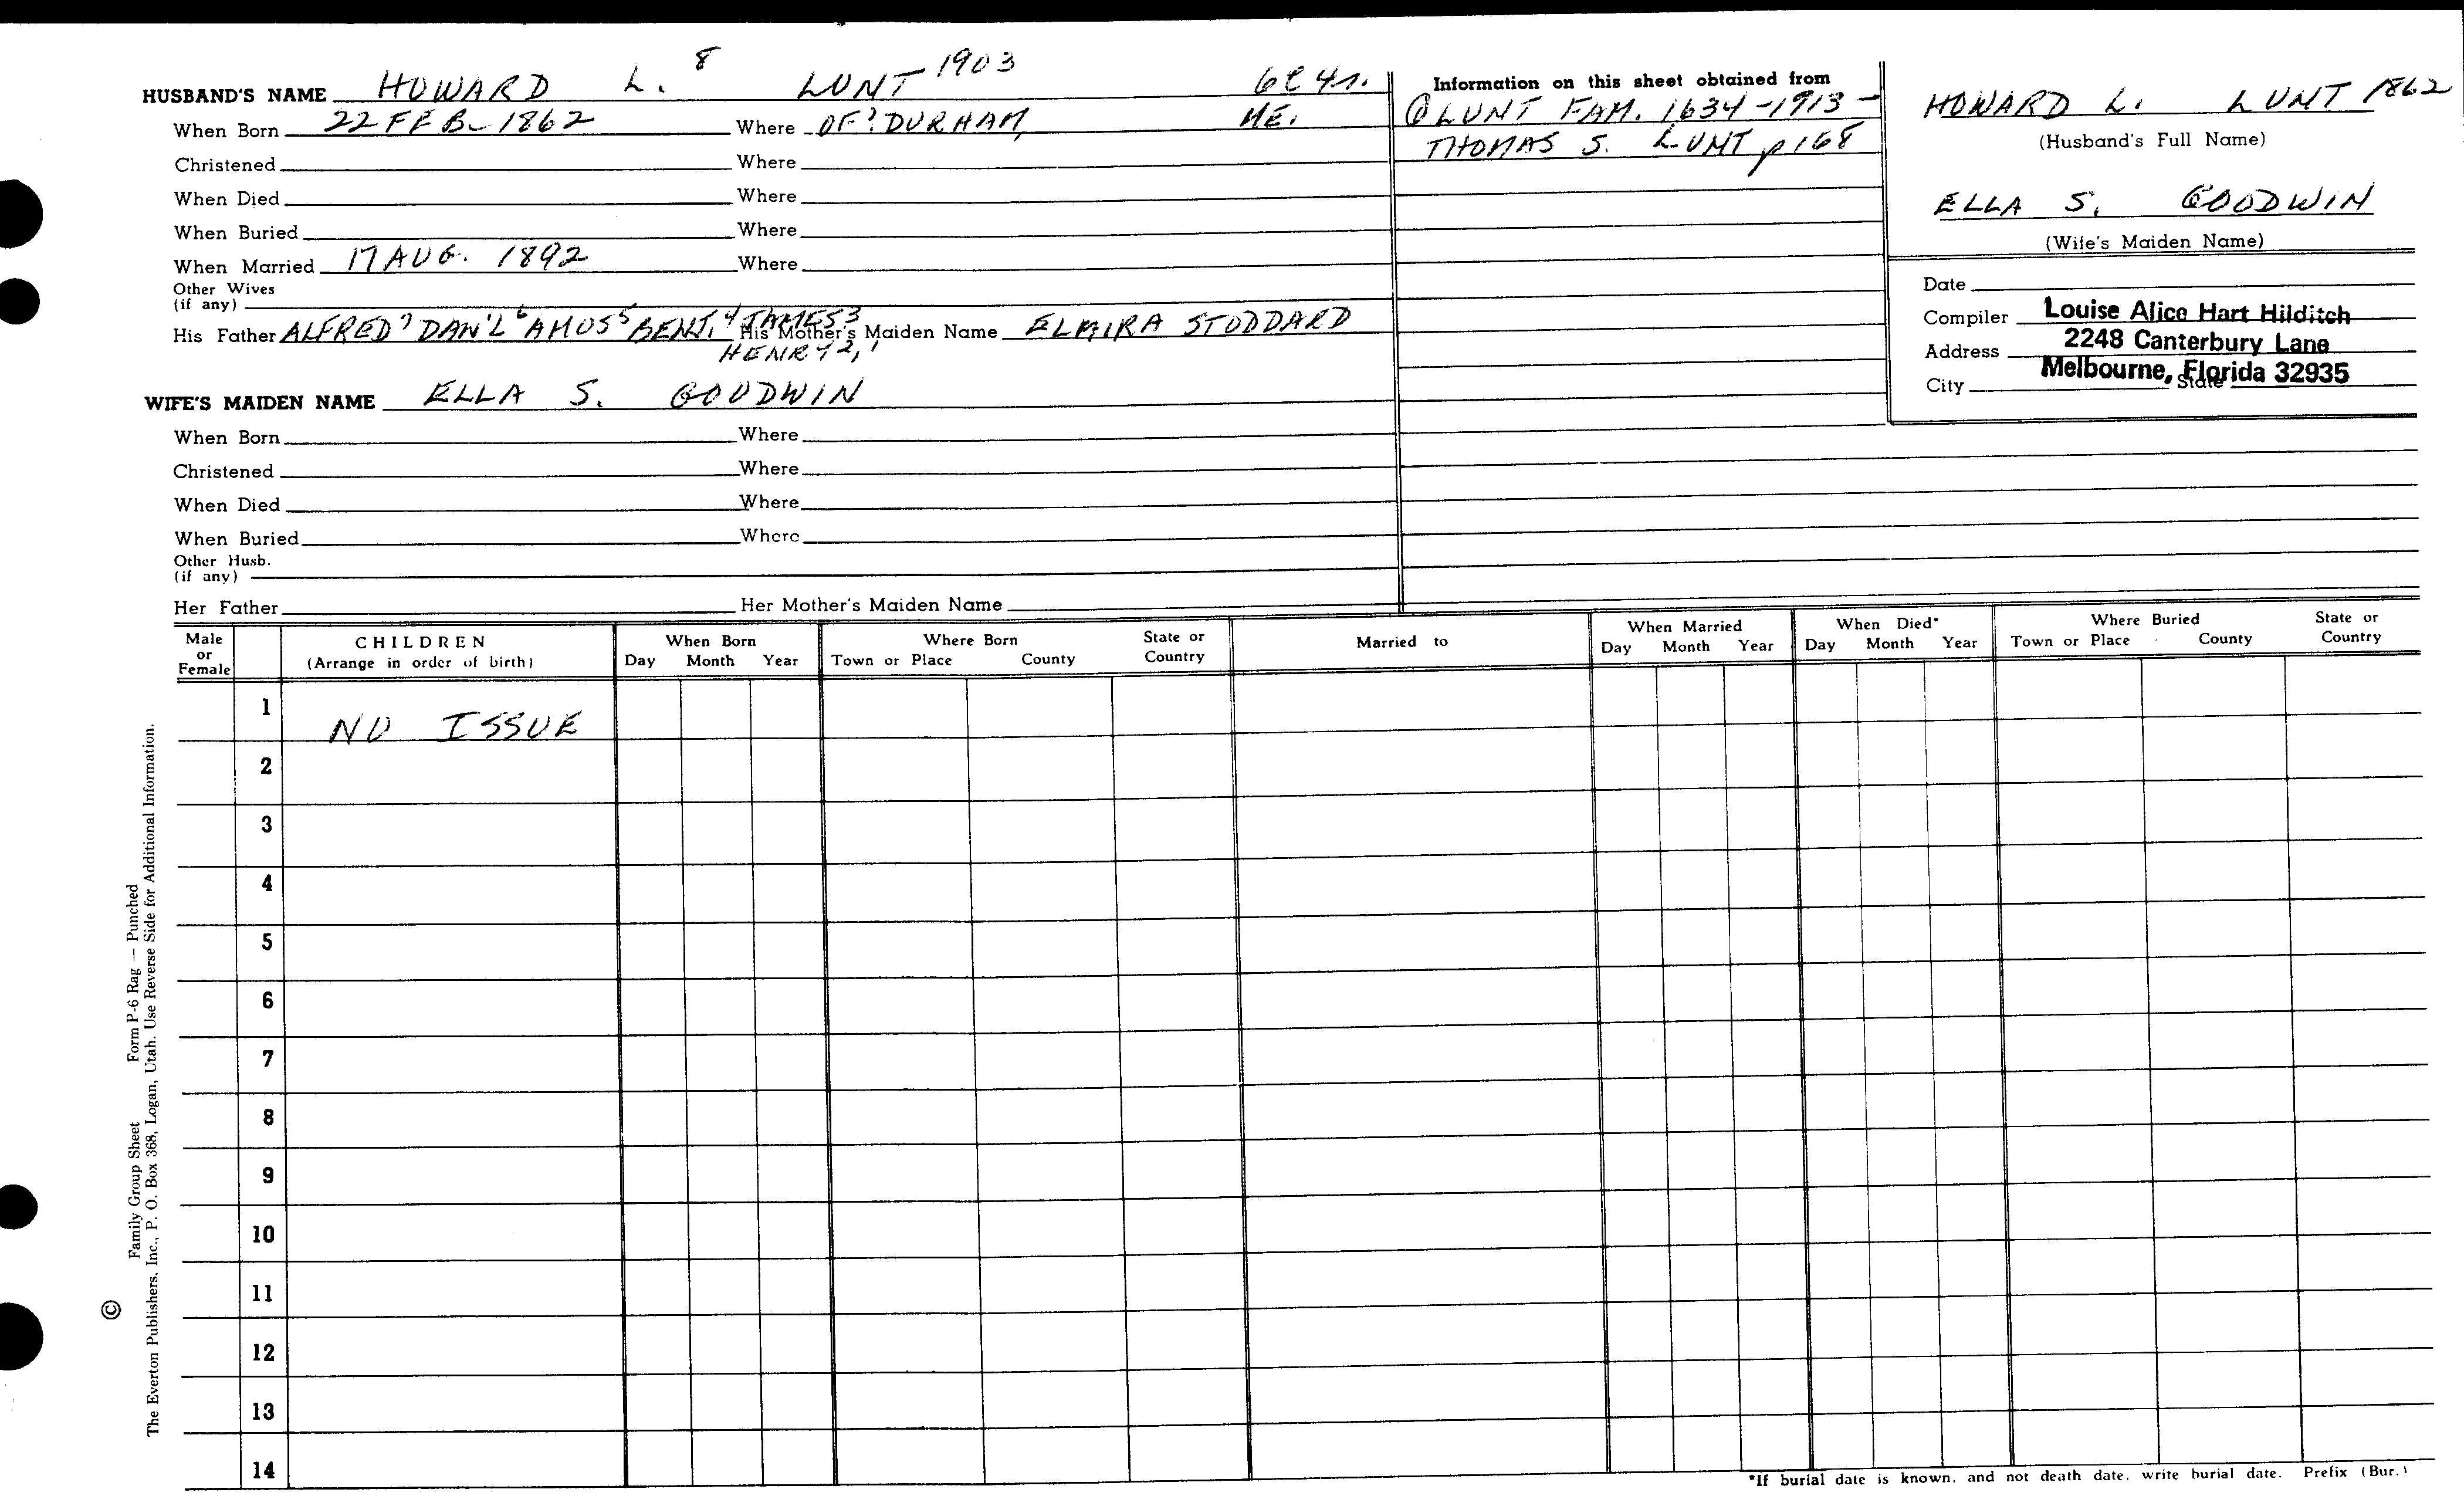 HUSBAND'S NAME HOWARD L. 8 LUNT 1903
When Born 22 FEB. 1862 Where OF? DURHAM, ME.
Christened Where
When Died Where
When Buried Where
When Married 17 AUG. 1892 Where
Other Wives
(if any)
His Father ALFRED 7 DAN'L 6 AMOS 5 BENJ. 4 JAMES 3 His Mother's Maiden Name ELMIRA STODDARD
HENRY 2, 1
WIFE'S MAIDEN NAME ELLA S. GOODWIN
When Born Where
Christened Where
When Died Where
When Buried Where
Other Husb.
(if any)
Her Father Her Mother's Maiden Name
Information on this sheet obtained from
LUNT FAM. 1634-1913-
THOMAS S. LUNT p168
HOWARD L. LUNT 1862
(Husband's Full Name)
ELLA S. GOODWIN
(Wife's Maiden Name)
Date
Compiler Louise Alice Hart Hilditch
Address 2248 Canterbury Lane
City Melbourne, Florida 32935 State
Male or Female
CHILDREN
(Arrange in order of birth)
When Born
Day Month Year
Where Born
Town or Place County State or Country
Married to
When Married
Day Month Year
When Died*
Day Month Year
Where Buried
Town or Place County State or Country
1 NO ISSUE
2
3
4
5
6
7
8
9
10
11
12
13
14
*If burial date is known, and not death date, write burial date. Prefix (Bur.)
© Family Group Sheet Form P-6 Rag — Punched
The Everton Publishers, Inc., P. O. Box 368, Logan, Utah. Use Reverse Side for Additional Information.